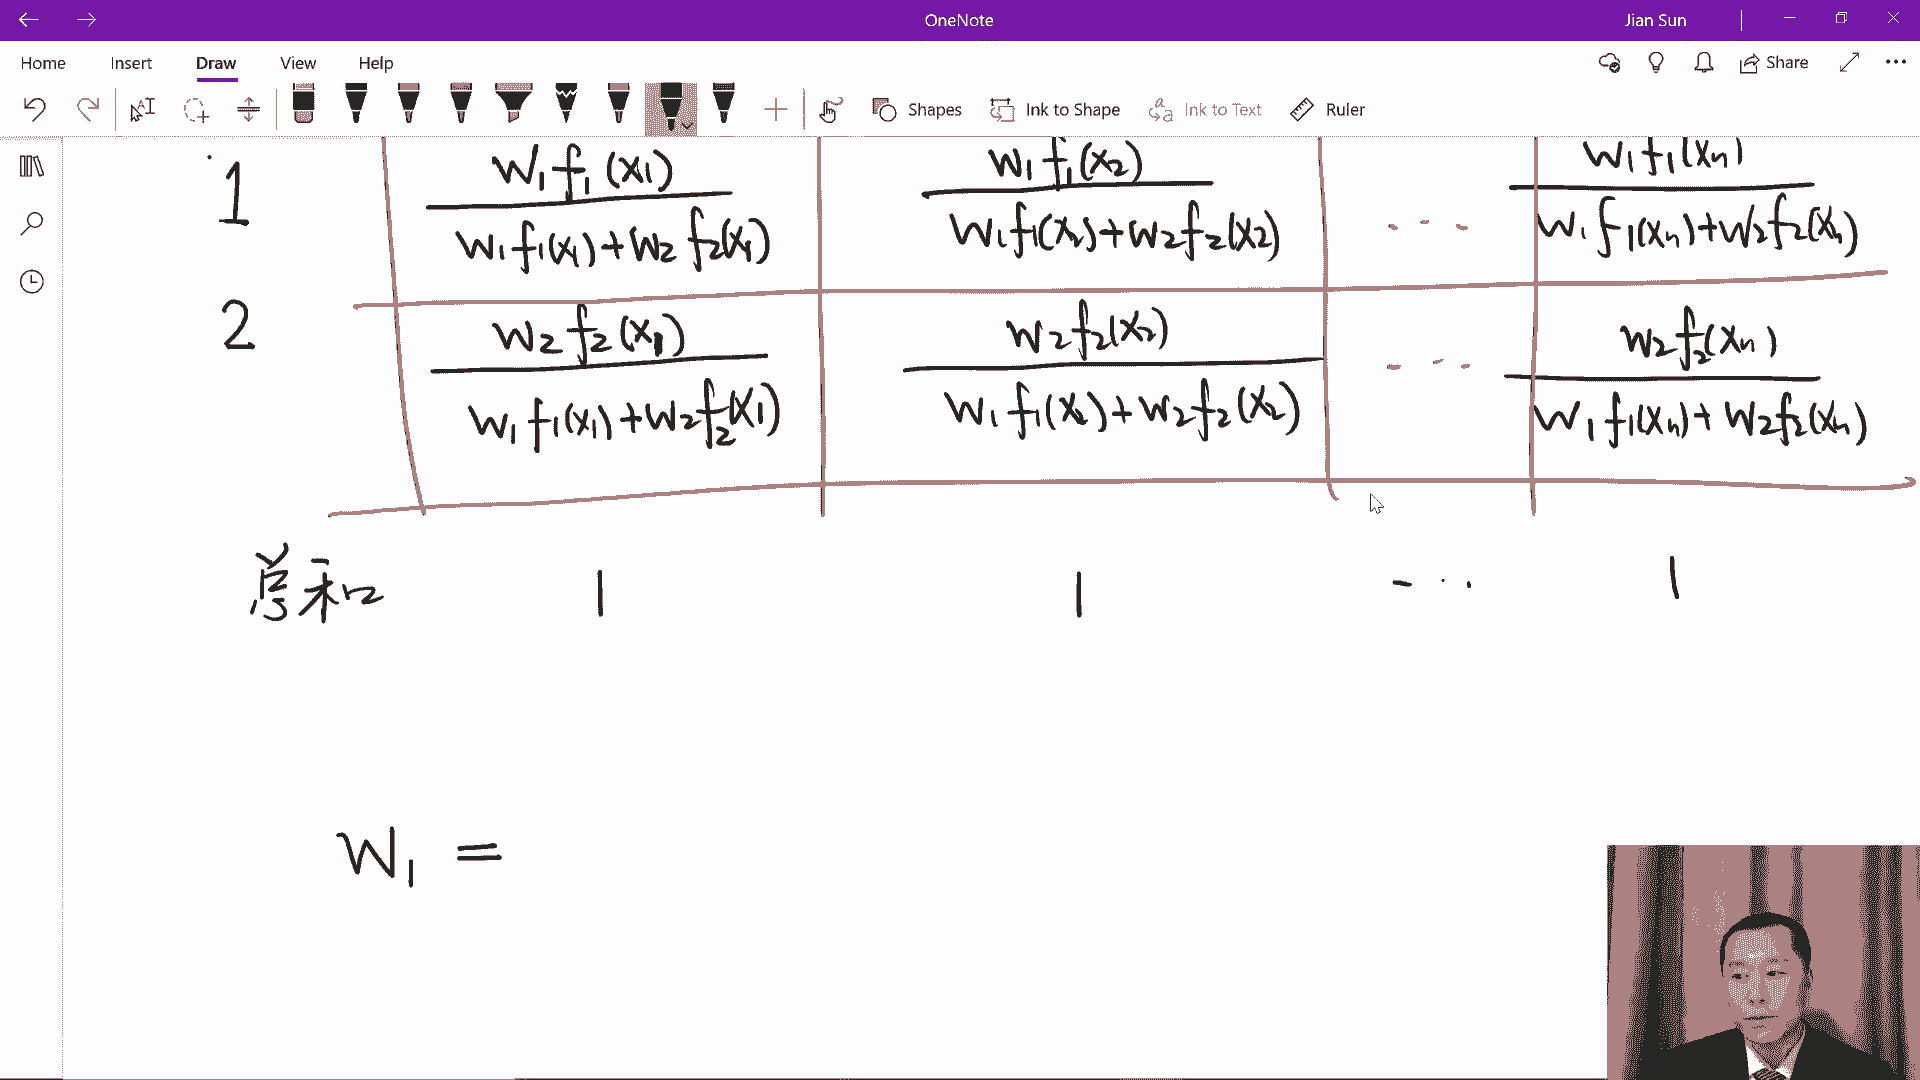 OneNote
Jian Sun
Home Insert Draw View Help
Share
Shapes Ink to Shape Ink to Text Ruler
1 W₁f₁(x₁) / W₁f₁(x₁)+W₂f₂(x₁) W₁f₁(x₂) / W₁f₁(x₂)+W₂f₂(x₂) ... W₁f₁(xₙ) / W₁f₁(xₙ)+W₂f₂(xₙ)
2 W₂f₂(x₁) / W₁f₁(x₁)+W₂f₂(x₁) W₂f₂(x₂) / W₁f₁(x₂)+W₂f₂(x₂) ... W₂f₂(xₙ) / W₁f₁(xₙ)+W₂f₂(xₙ)
总和 1 1 ... 1
W₁ =